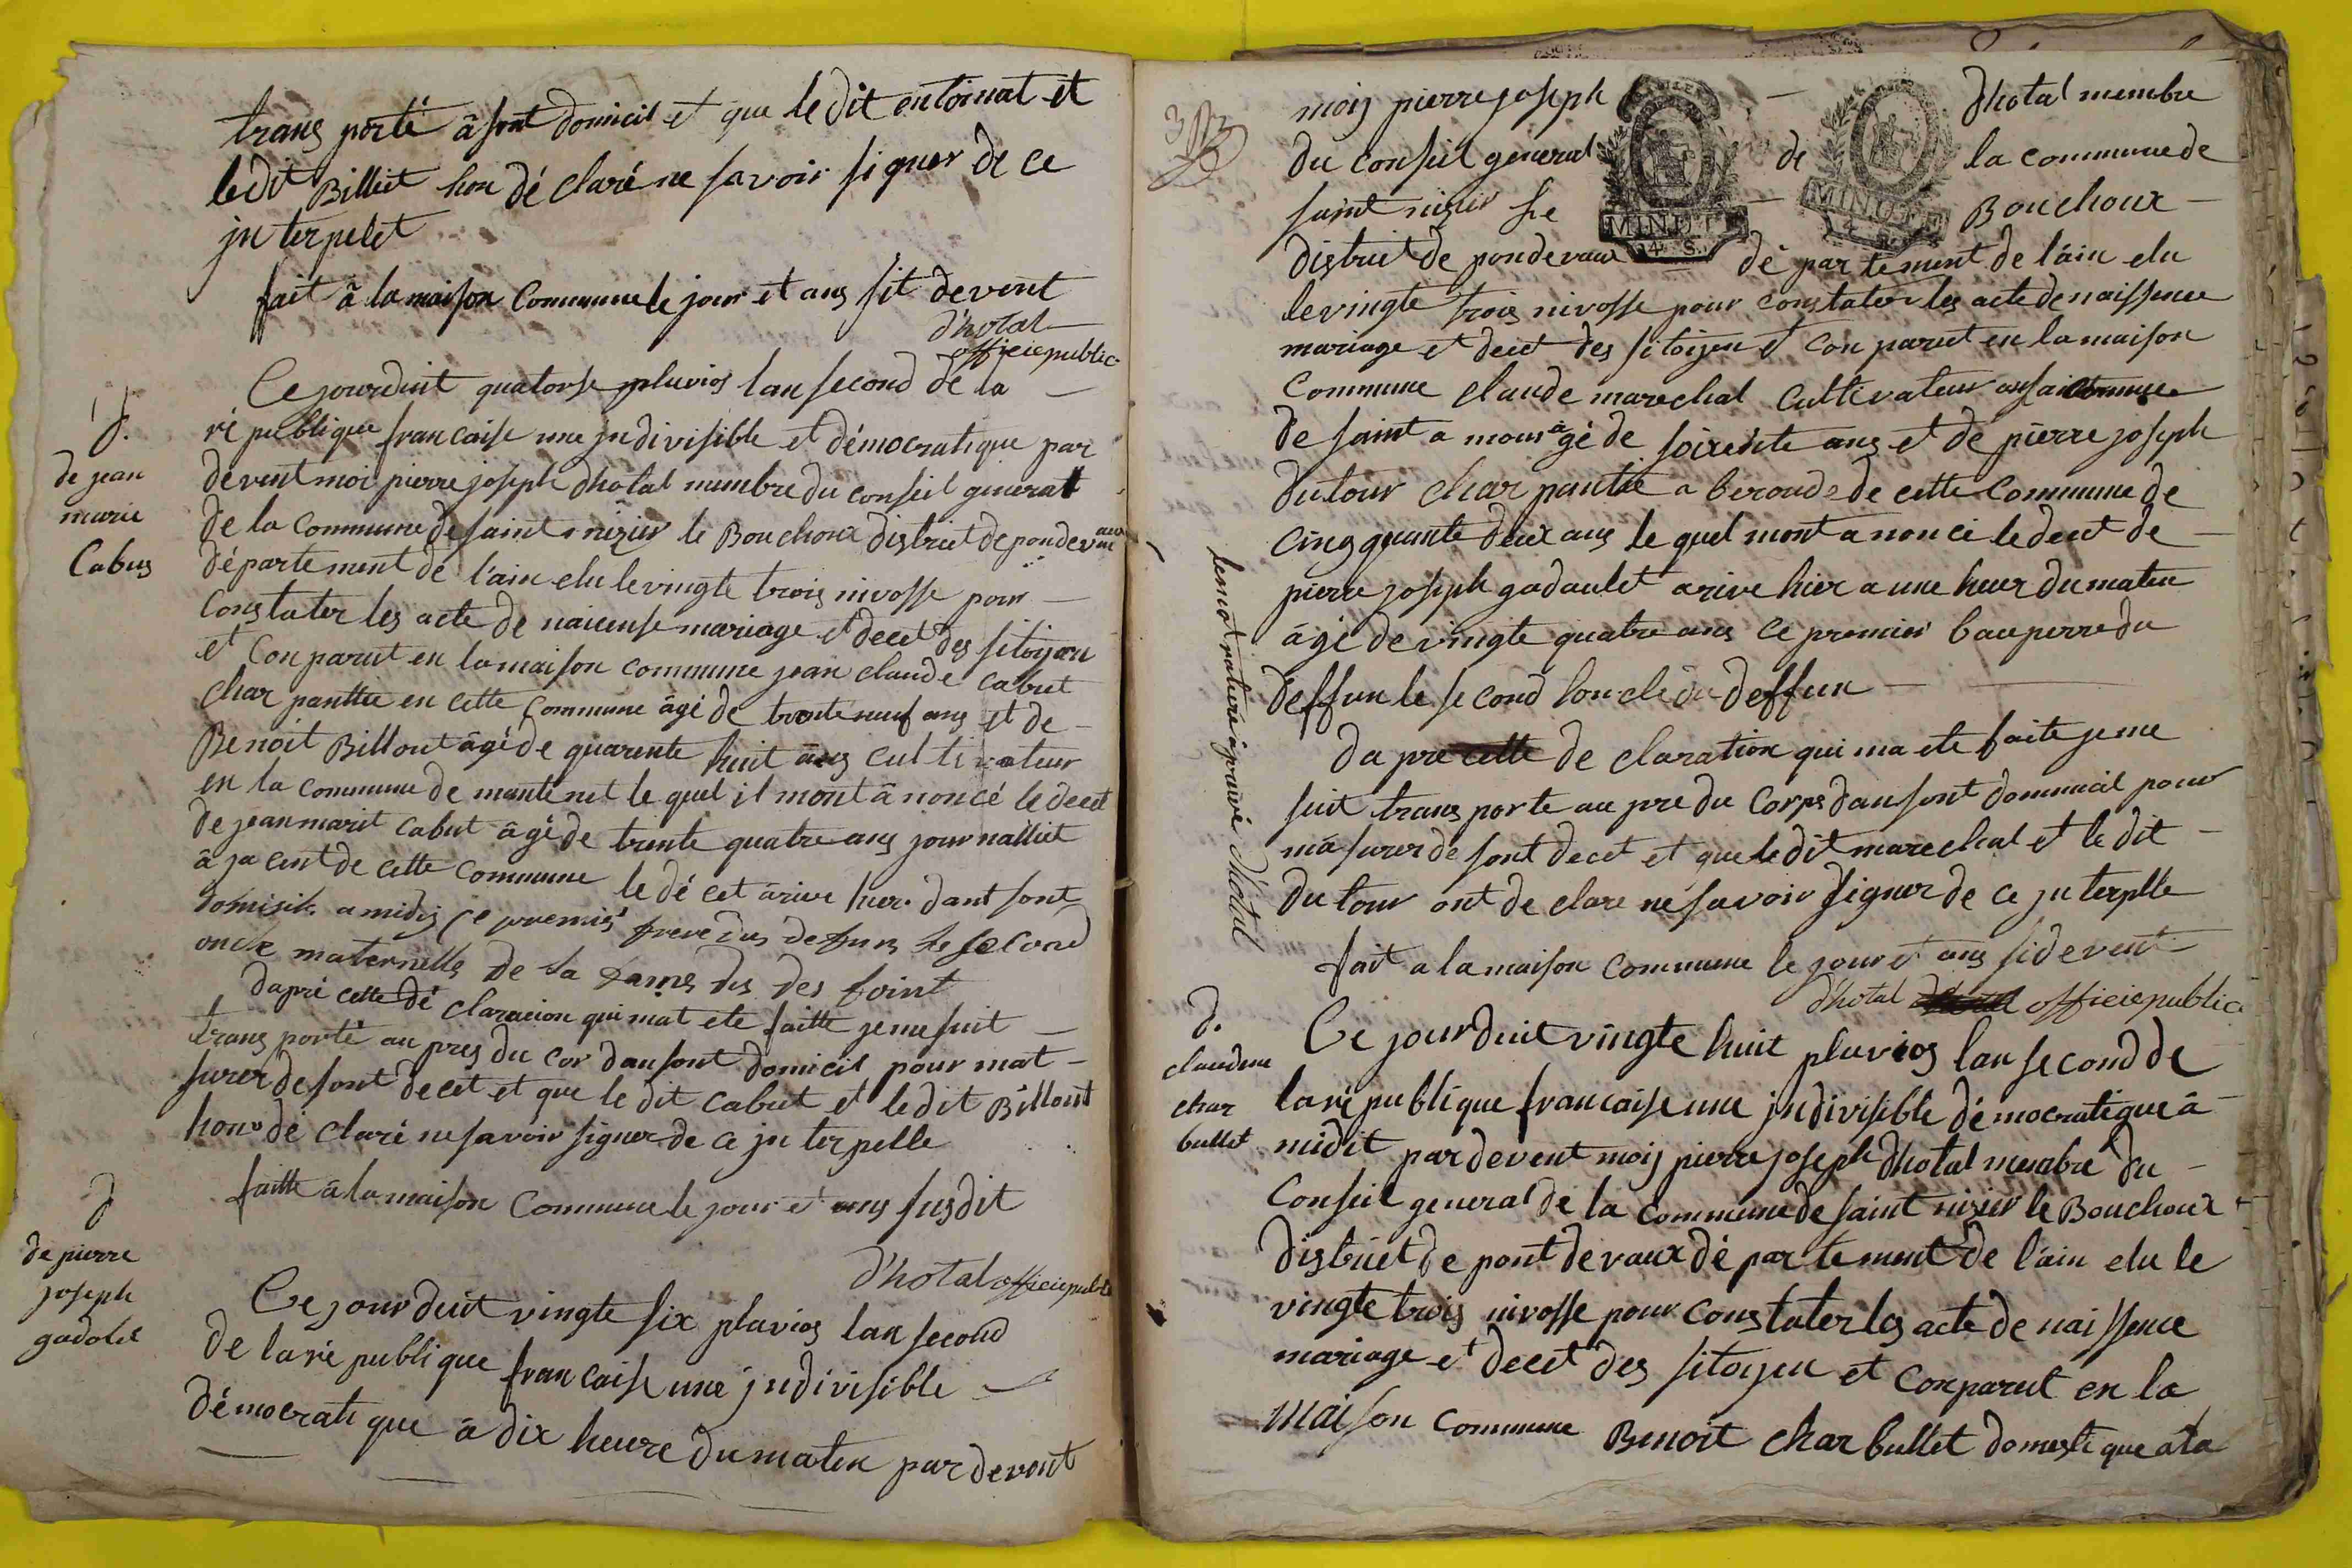 trans porté â sont domicil et que le dit entoinat et
le dit Billiet hon dé claré ne savoir signer de ce
jn terpelet
fait â la maison Commune le jour et ans sit devent
d'hotal
officie public
Ce jourduit quatorse pluvios lan second de la
ré publique francaise une jndivisible et démocratique par
devent moi pierre joseph dhotal membre du conseil generat
de la Commune de saint nizier le Bouchoux district de pondevaux
département de l'ain elu le vingte trois nivosse pour
Constater les acte de naicense mariage et decet des sitoijen
et Con parut en la maison commune jean claude cabut
char panttie en cette Commune âgé de trente neuf ans et de
Benoit Billout âgé de quarente huit âns cultivateur
en la commune de mantenet le quel il mont â noncé le decet
de jean marit cabut âgé de trente quatre ans journalliet
â ja cent de cette commune le dé cet ârive hier dant sont
domisile a midis ce premié frere dus defuns le second
oncle maternelle de la fame dus des foint
dapré cette dé claracion qui mat ete faitte je me suit
trans porté au pres du cor dan sont domicil pour mat
surer de sont decet et que le dit cabut et le dit Billout
hon dé claré ne savoir signer de ce jn terpelle
faitte â la maison Commune le jour et ans susdit
d'hotal officie public
Ce jour duit vingte six pluvios lan second
de la ré publique francaise une jndivisible
démocrati que â dix heure du maten par devent
d.
de jean
marie
Cabus
d
de pierre
joseph
gadolet
moij pierre joseph dhotal membre
du conseil general de la commune de
saint nizier le Bouchoux
MINUTE
4. S.
MINUTE
4. S.
district de pondevaux dé par tement de l'âin elu
le vingte trois nivosse pour constater les acte de naissence
mariage et decet des sitoijen et Con parut en la maison
Commune claude marechal cultivateur commune
de saint a mour âgé de soixente ans et de pierre joseph
dutour char pantié a beroud de cette Commune de
cinqquante deux ans le quel mont a non cé le decet de
pierre joseph gadaulet arive hier a une heur du maten
âgé de vingte quatre ans ce premier bau perre du
deffun le second loncle du deffun
da pre cette de claration qui ma ete faite je me
suit trans porte au pre du Corps dan sont dommicil pour
mâ surer de sont decet et que le dit marechal et le dit
du tour ont de clare ne savoir signer de ce jn terpelle
fait a la maison Commune le jour et ans si devent
d'hotal officie public
le mot rature âprouvé d'hotal
d.
claudine
char
bullet
Ce jour duit vingte huit pluvios lan second de
la ré publique francaise une jndivisible démocratique â
midit par devent moij pierre joseph dhotal membre du
Conseil general de la Commune de saint nizier le Bouchoux
district de pont de vaux dé par tement de l'ain elu le
vingte trois nivosse pour constater les acte de naissence
mariage et decet des sitoijen et Conparut en la
maison commune Benoit char bullet domesti que a la